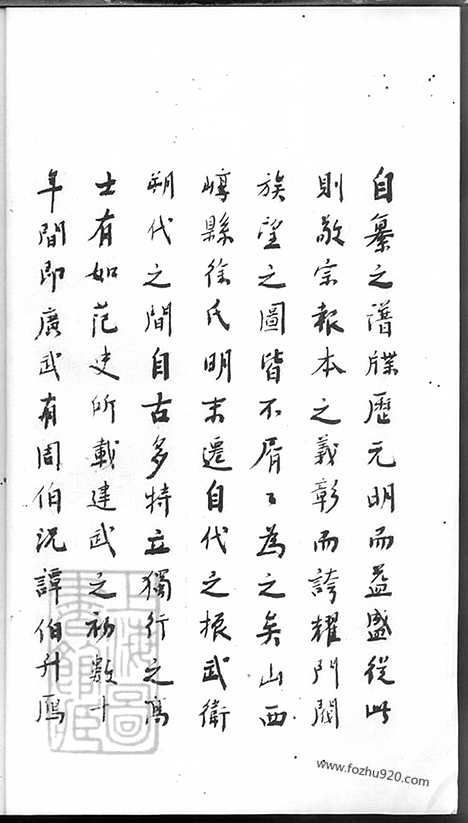 自纂之譜牒歷元明而益盛從此
則敬宗報本之義彰而誇耀門閥
族望之圖皆不屑〻為之矣山西
崞縣徐氏明末遷自代之振武衛
朔代之間自古多特立獨行之
士有如范史所載建武之初數十
年間即廣武有周伯況譚伯升
上海圖書館藏
www.fozhu920.com